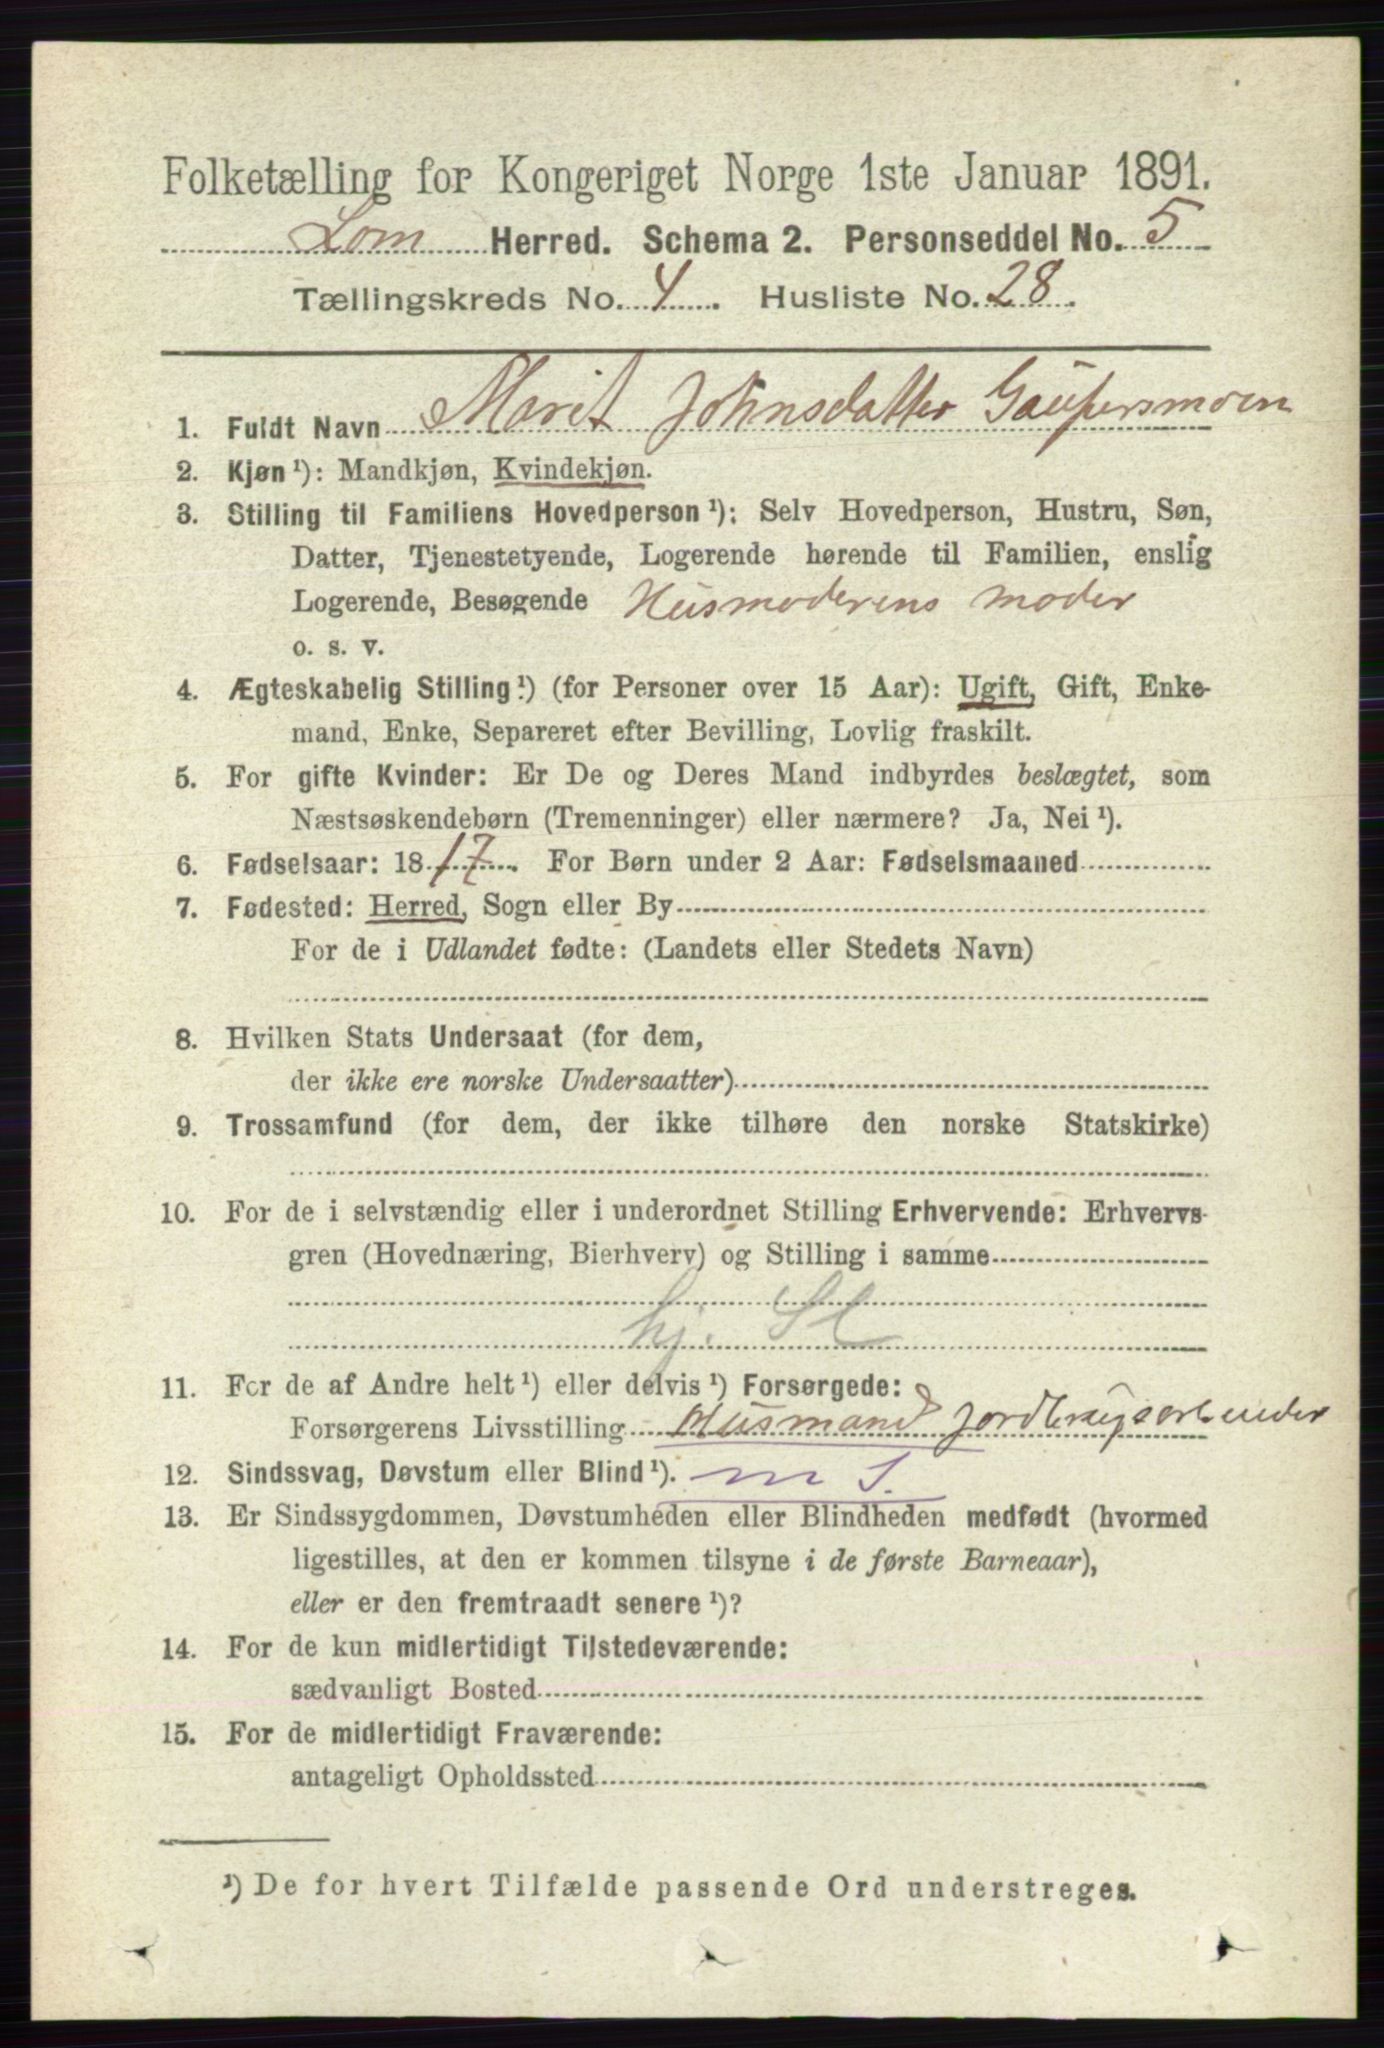 Folketælling for Kongeriget Norge 1ste Januar 1891.
Lom Herred. Schema 2. Personseddel No. 5
Tællingskreds No. 4. Husliste No. 28.
1. Fuldt Navn Marit Johnsdatter Gaupersmoen
2. Kjøn ¹): Mandkjøn, Kvindekjøn.
3. Stilling til Familiens Hovedperson ¹): Selv Hovedperson, Hustru, Søn,
Datter, Tjenestetyende, Logerende hørende til Familien, enslig
Logerende, Besøgende Husmoderens moder
o. s. v.
4. Ægteskabelig Stilling ¹) (for Personer over 15 Aar): Ugift, Gift, Enke-
mand, Enke, Separeret efter Bevilling, Lovlig fraskilt.
5. For gifte Kvinder: Er De og Deres Mand indbyrdes beslægtet, som
Næstsøskendebørn (Tremenninger) eller nærmere? Ja, Nei ¹).
6. Fødselsaar: 1817. For Børn under 2 Aar: Fødselsmaaned
7. Fødested: Herred, Sogn eller By
For de i Udlandet fødte: (Landets eller Stedets Navn)
8. Hvilken Stats Undersaat (for dem,
der ikke ere norske Undersaatter)
9. Trossamfund (for dem, der ikke tilhøre den norske Statskirke)
10. For de i selvstændig eller i underordnet Stilling Erhvervende: Erhvervs-
gren (Hovednæring, Bierhverv) og Stilling i samme
hj. Sl
11. For de af Andre helt ¹) eller delvis ¹) Forsørgede:
Forsørgerens Livsstilling Husmand Jordbrugsarbeider
12. Sindssvag, Døvstum eller Blind ¹). m S.
13. Er Sindssygdommen, Døvstumheden eller Blindheden medfødt (hvormed
ligestilles, at den er kommen tilsyne i de første Barneaar),
eller er den fremtraadt senere ¹)?
14. For de kun midlertidigt Tilstedeværende:
sædvanligt Bosted
15. For de midlertidigt Fraværende:
antageligt Opholdssted
¹) De for hvert Tilfælde passende Ord understreges.